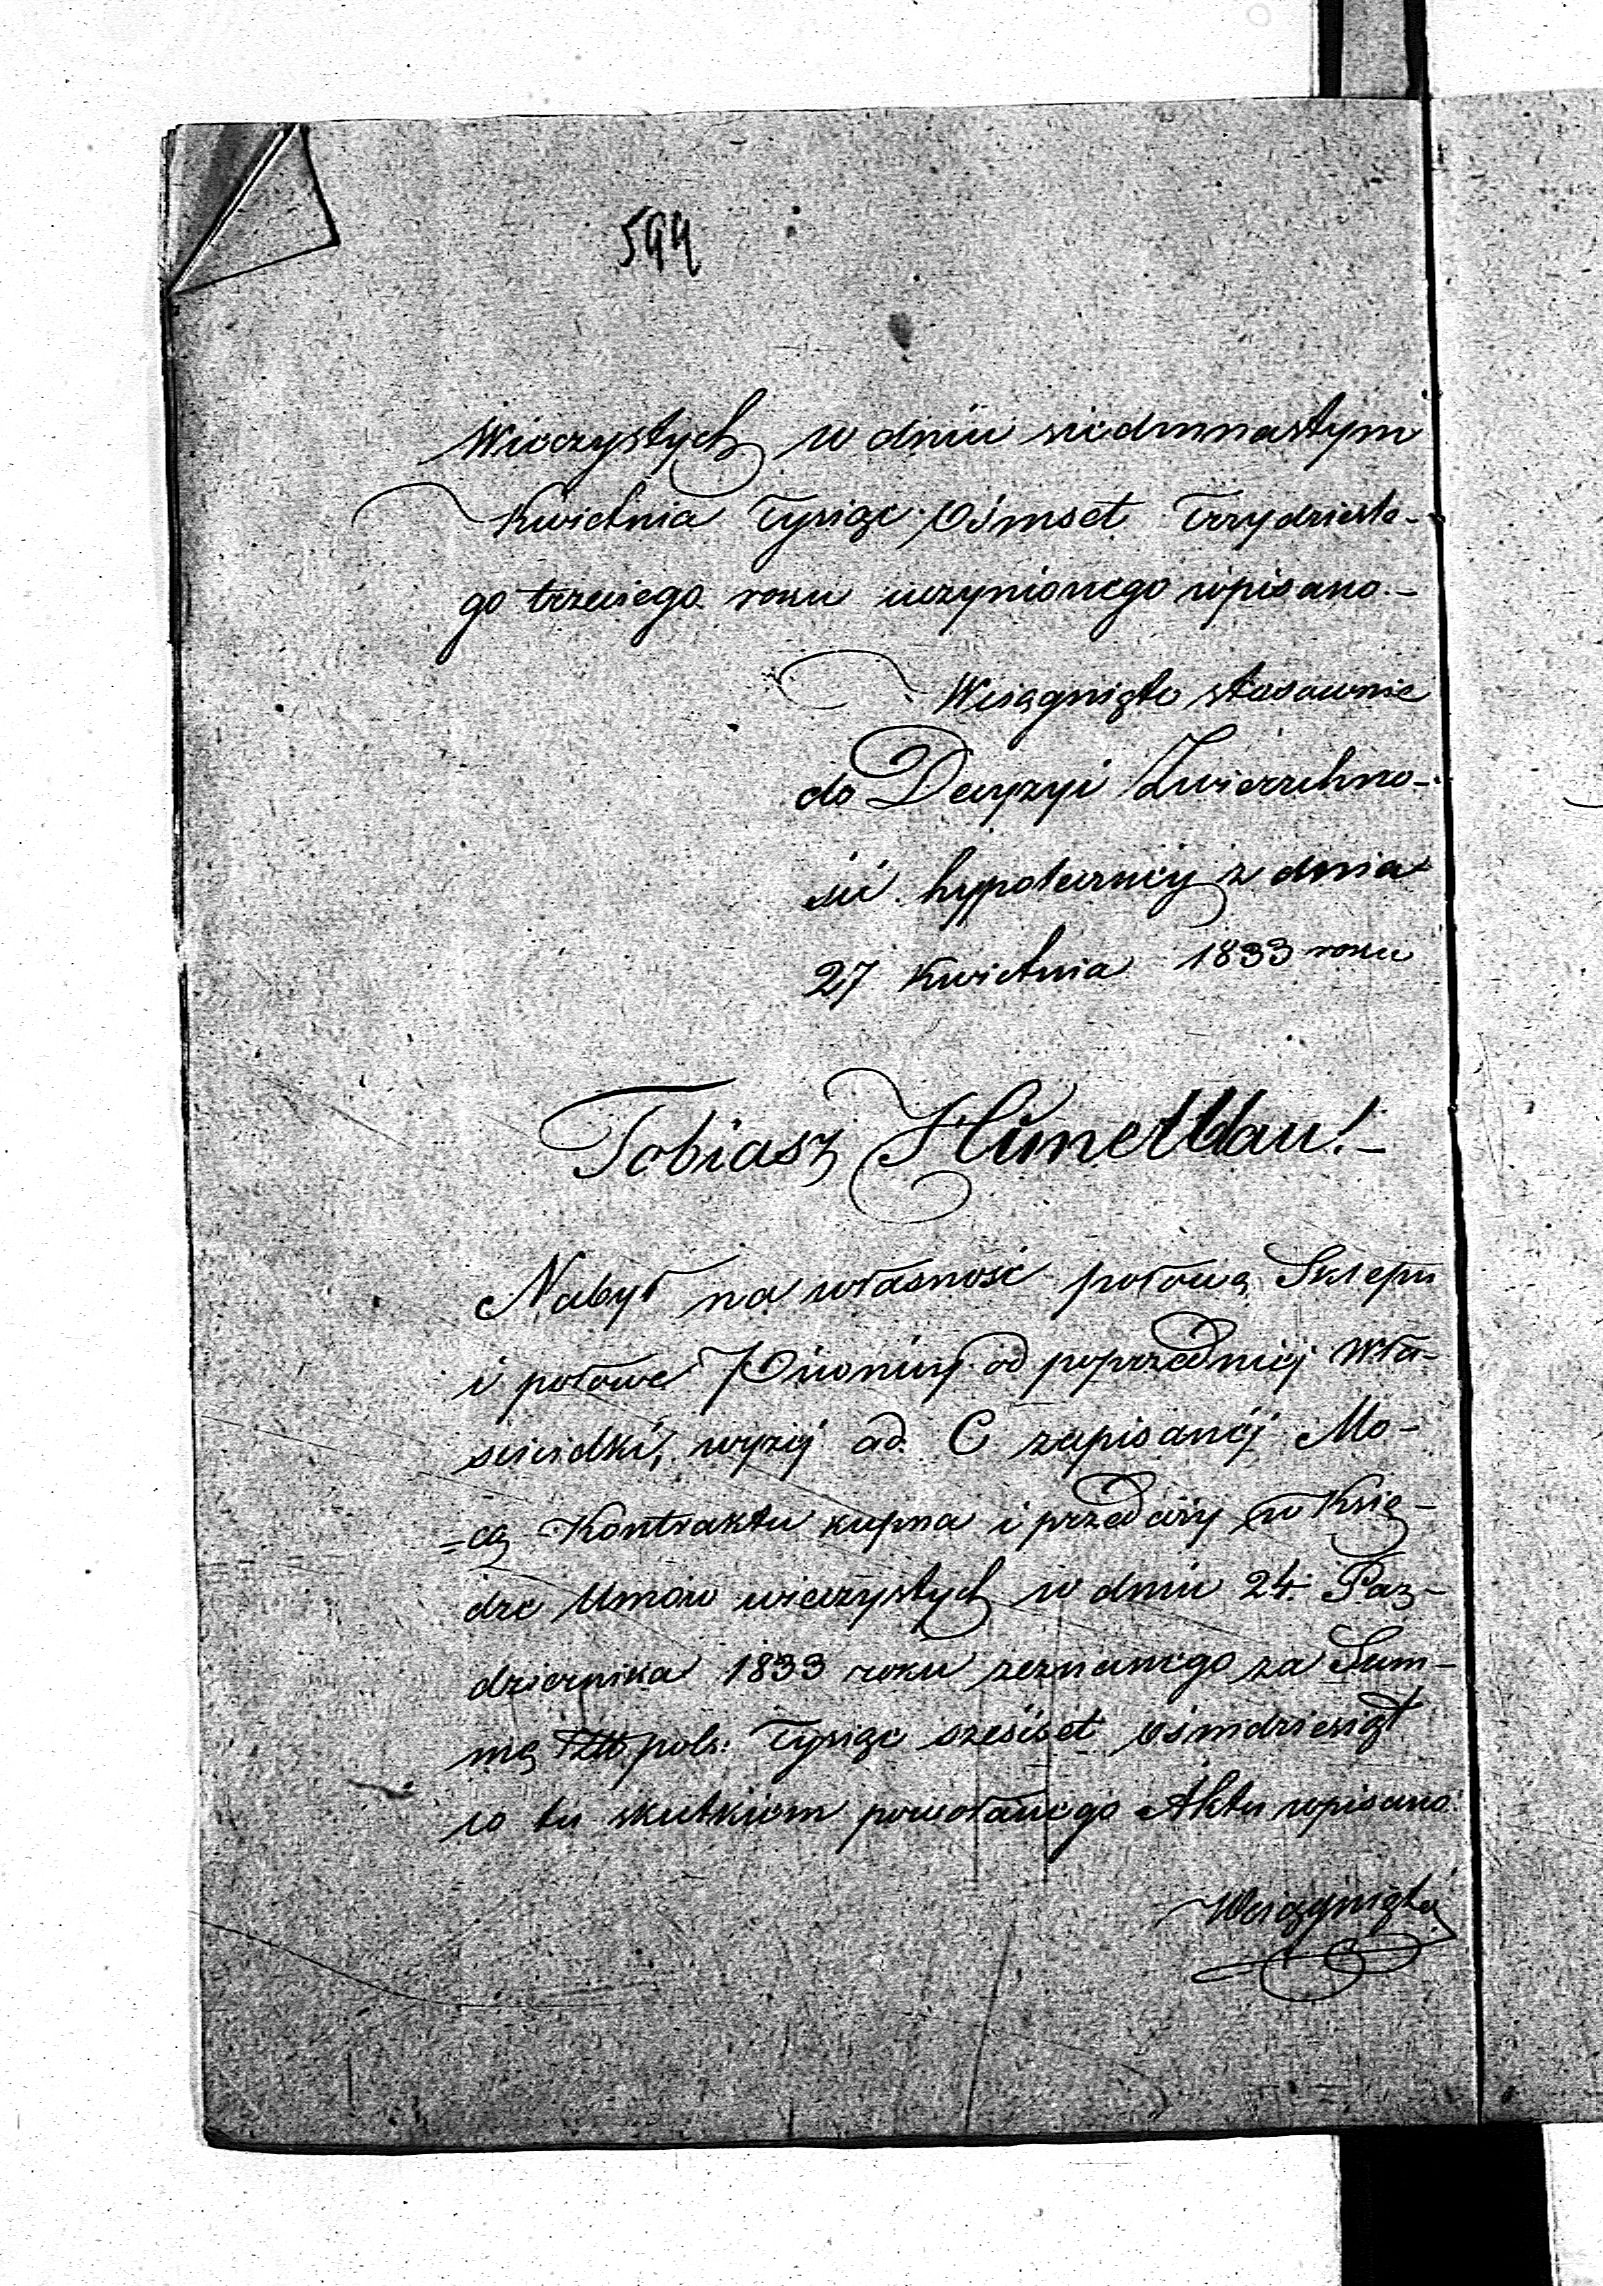 594
Wieczystych w dniu siedmnastym
Kwietnia Tysiąc Ośmset Trzydzieste-
go trzeciego roku uczynionego wpisano.-
Wciągnięto stosownie
do Decyzyi Zwierzchno-
ści hypotecznéj z dnia
27 Kwietnia 1833 roku
Tobiasz
Nabył na własność połowę Sklepu
i połowę Piwnicy od poprzedniéj Wła-
ścicielki, wyżéj ad. C zapisanéj Mo-
=cą Kontraktu kupna i przedaży w Księ-
dze Umów wieczystych w dniu 24. Paz-
dziernika 1833 roku zeznanego za Sum-
mę Złt pols: Tysiąc sześćset Ośmdziesiąt
co tu skutkiem powołanego Aktu wpisano.
Wciągnięto